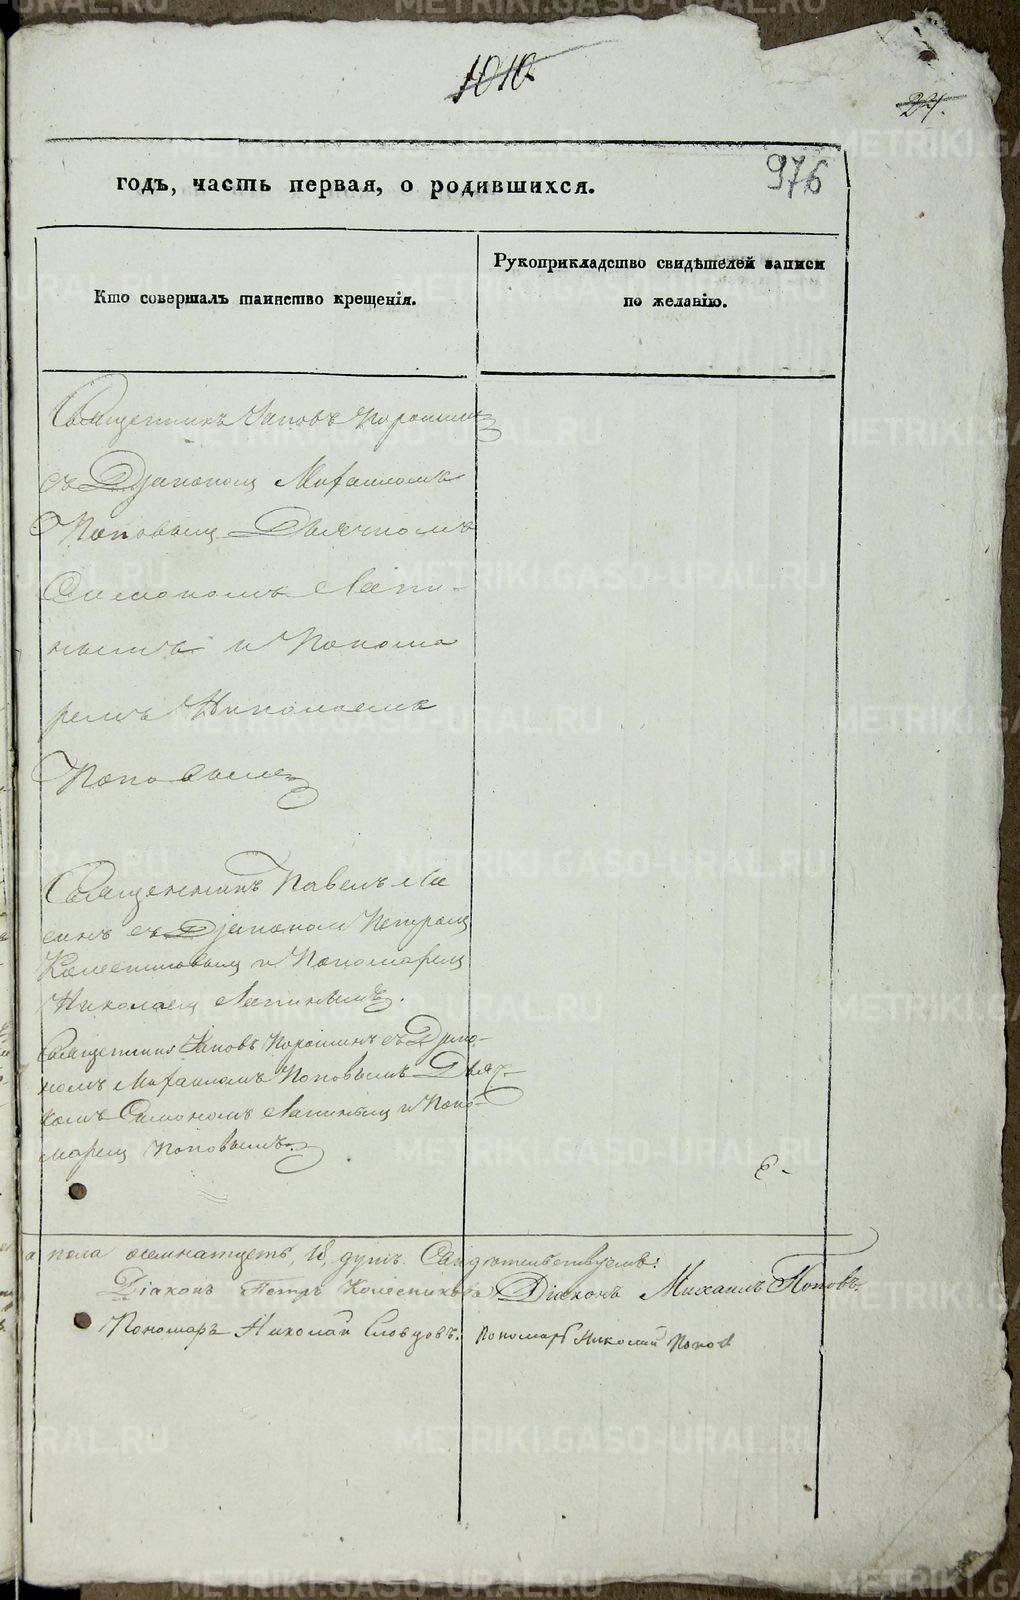 1010
24.
976
годъ, часть первая, о родившихся.
Кто совершалъ таинство крещенія.
Рукоприкладство свидѣтелей записи
по желанію.
Священникъ Іаковъ Порошинъ
съ Дьякономъ Михаиломъ
Поповымъ Дьячкомъ
Симономъ Лепи-
нымъ и Понома
ремъ Николаемъ
Поповымъ
Священникъ Павелъ
съ Дьякономъ Петромъ
Колесниковымъ и Пономаремъ
Николаемъ Лепинымъ.
Священникъ Іаковъ Порошинъ съ Дьяко-
номъ Михаиломъ Поповымъ Дьяч-
комъ Симономъ Лапинымъ и Поно-
маремъ Поповымъ.
пола осемнатцеть, 18, душъ. Свидѣтельствуемъ:
Діаконъ Петръ Колесниковъ Діаконъ Михаилъ Поповъ.
Пономаръ Николай Словцовъ. Пономарь Николай Попов
METRIKI.GASO-URAL.RU